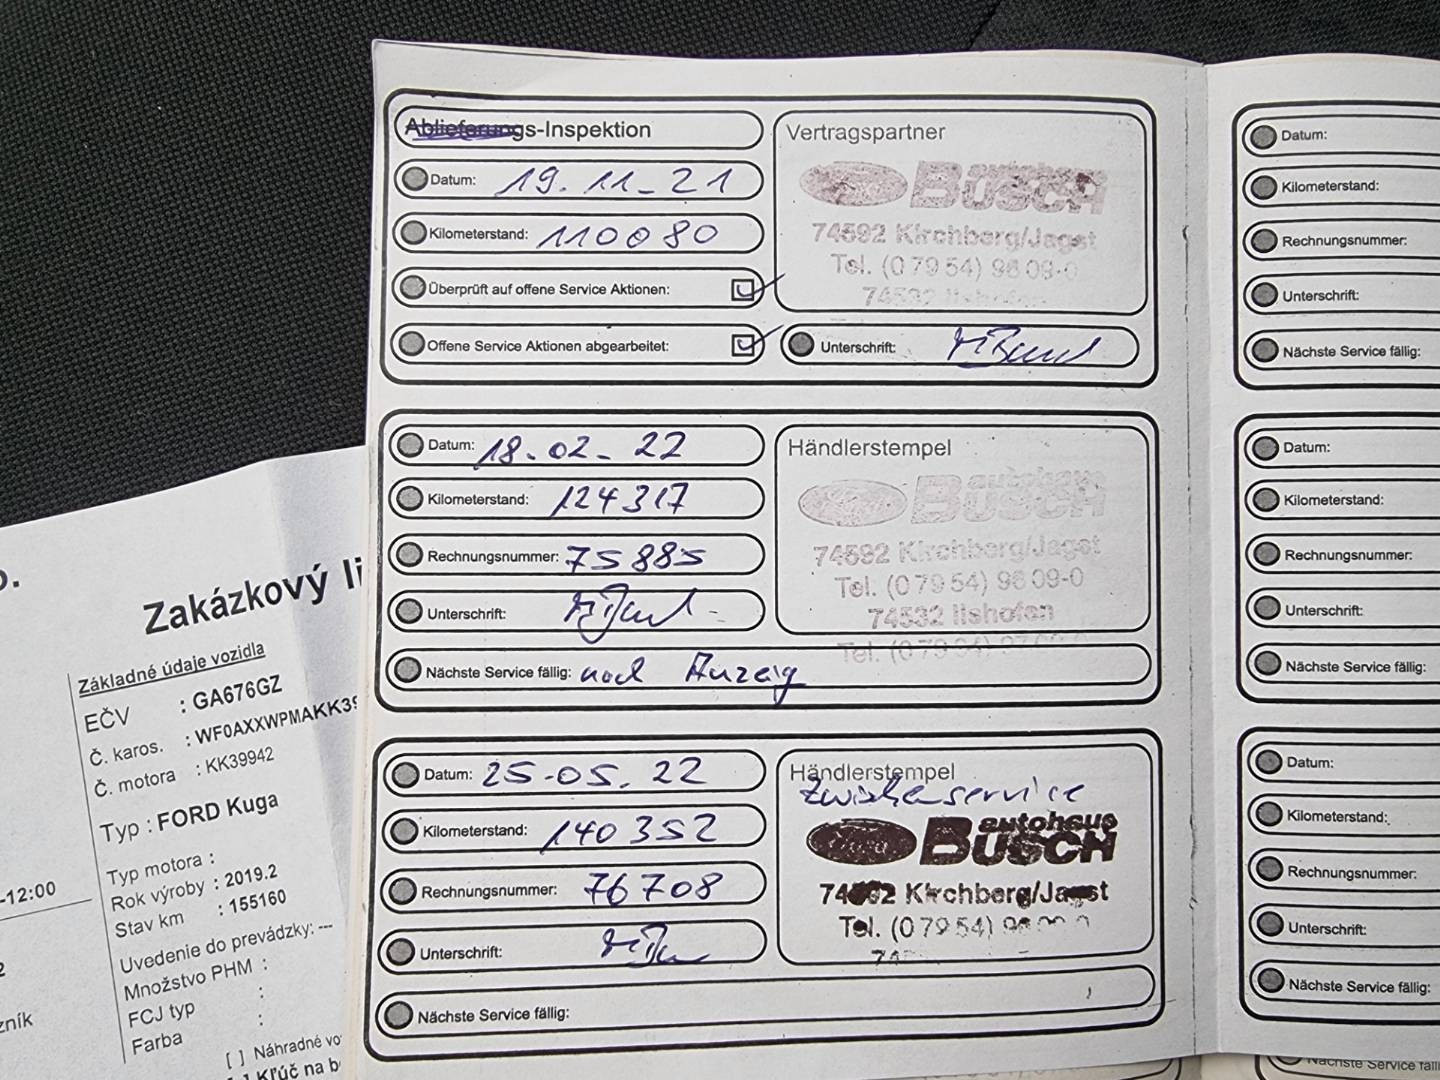 Ablieferungs-Inspektion
Datum: 19.11-21
Kilometerstand: 110080
Überprüft auf offene Service Aktionen:
Offene Service Aktionen abgearbeitet:
Vertragspartner
autohaus
BUSCH
74592 Kirchberg/Jagst
Tel. (0 79 54) 98 09-0
74532 Ilshofen
Unterschrift:
Datum: 18.02-22
Kilometerstand: 124317
Rechnungsnummer: 75885
Unterschrift:
Nächste Service fällig: nach Anzeig
Händlerstempel
autohaus
BUSCH
74592 Kirchberg/Jagst
Tel. (0 79 54) 98 09-0
74532 Ilshofen
Datum: 25-05.22
Kilometerstand: 140352
Rechnungsnummer: 76708
Unterschrift:
Nächste Service fällig:
Händlerstempel
Zwischenservice
Ford
autohaus
BUSCH
74592 Kirchberg/Jagst
Tel. (0 79 54)
Datum:
Kilometerstand:
Rechnungsnummer:
Unterschrift:
Nächste Service fällig:
Datum:
Kilometerstand:
Rechnungsnummer:
Unterschrift:
Nächste Service fällig:
Datum:
Kilometerstand:
Rechnungsnummer:
Unterschrift:
Nächste Service fällig:
Nächste Service fäll
Zakázkový li
Základné údaje vozidla
EČV : GA676GZ
Č. karos. : WF0AXXWPMAKK39
Č. motora : KK39942
Typ : FORD Kuga
Typ motora :
Rok výroby : 2019.2
Stav km : 155160
Uvedenie do prevádzky: ---
Množstvo PHM :
FCJ typ :
Farba :
[ ] Náhradné vo
Kľúč na b
-12:00
zník